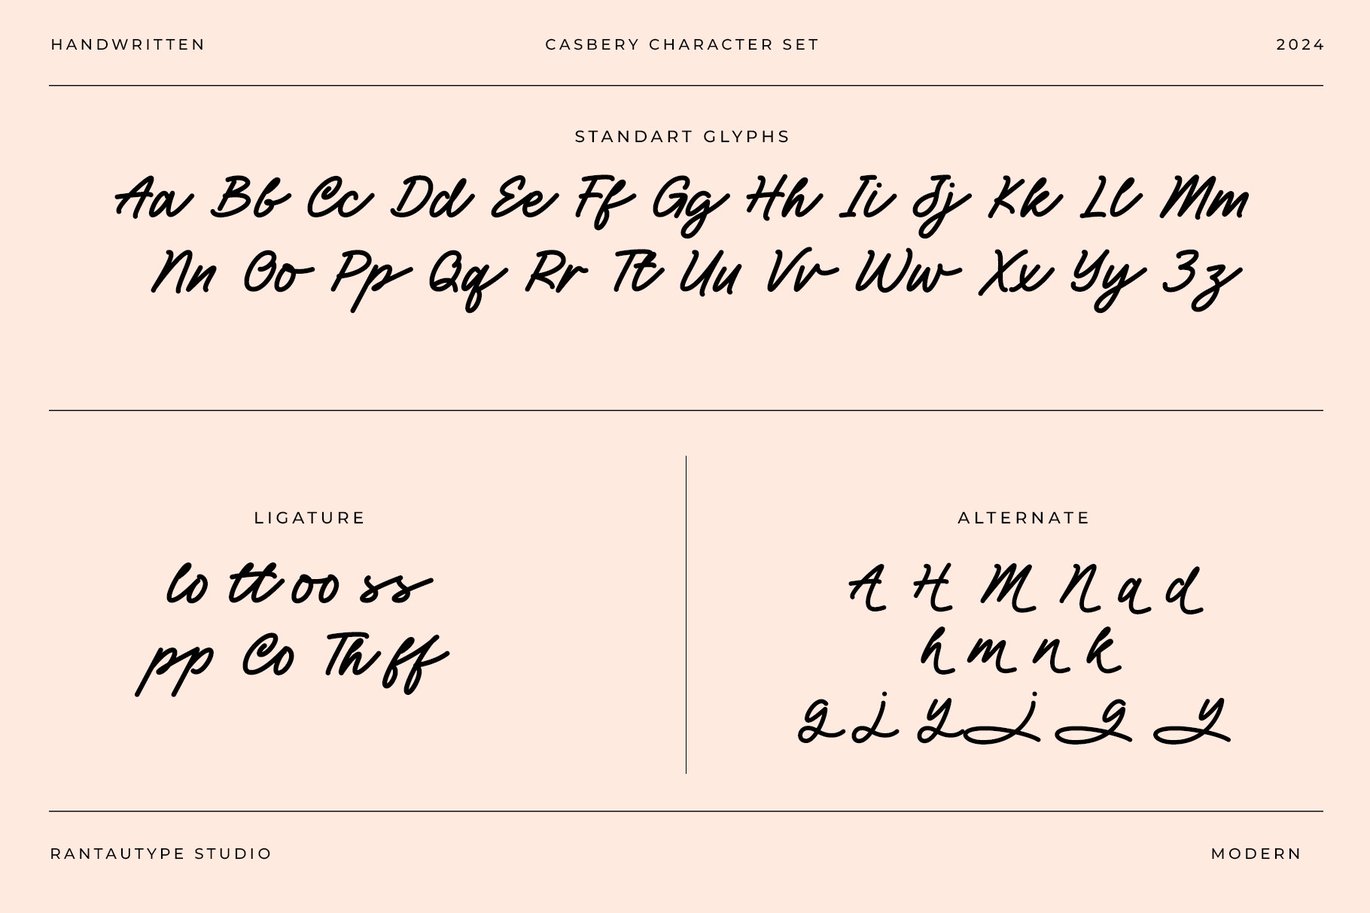 HANDWRITTEN
CASBERY CHARACTER SET
2024
STANDART GLYPHS
Aa Bb Cc Dd Ee Ff Gg Hh Ii Jj Kk Ll Mm
Nn Oo Pp Qq Rr Tt Uu Vv Ww Xx Yy Zz
LIGATURE
lo tt oo ss
pp Co Th ff
ALTERNATE
A H M N a d
h m n k
g j y j g y
RANTAUTYPE STUDIO
MODERN